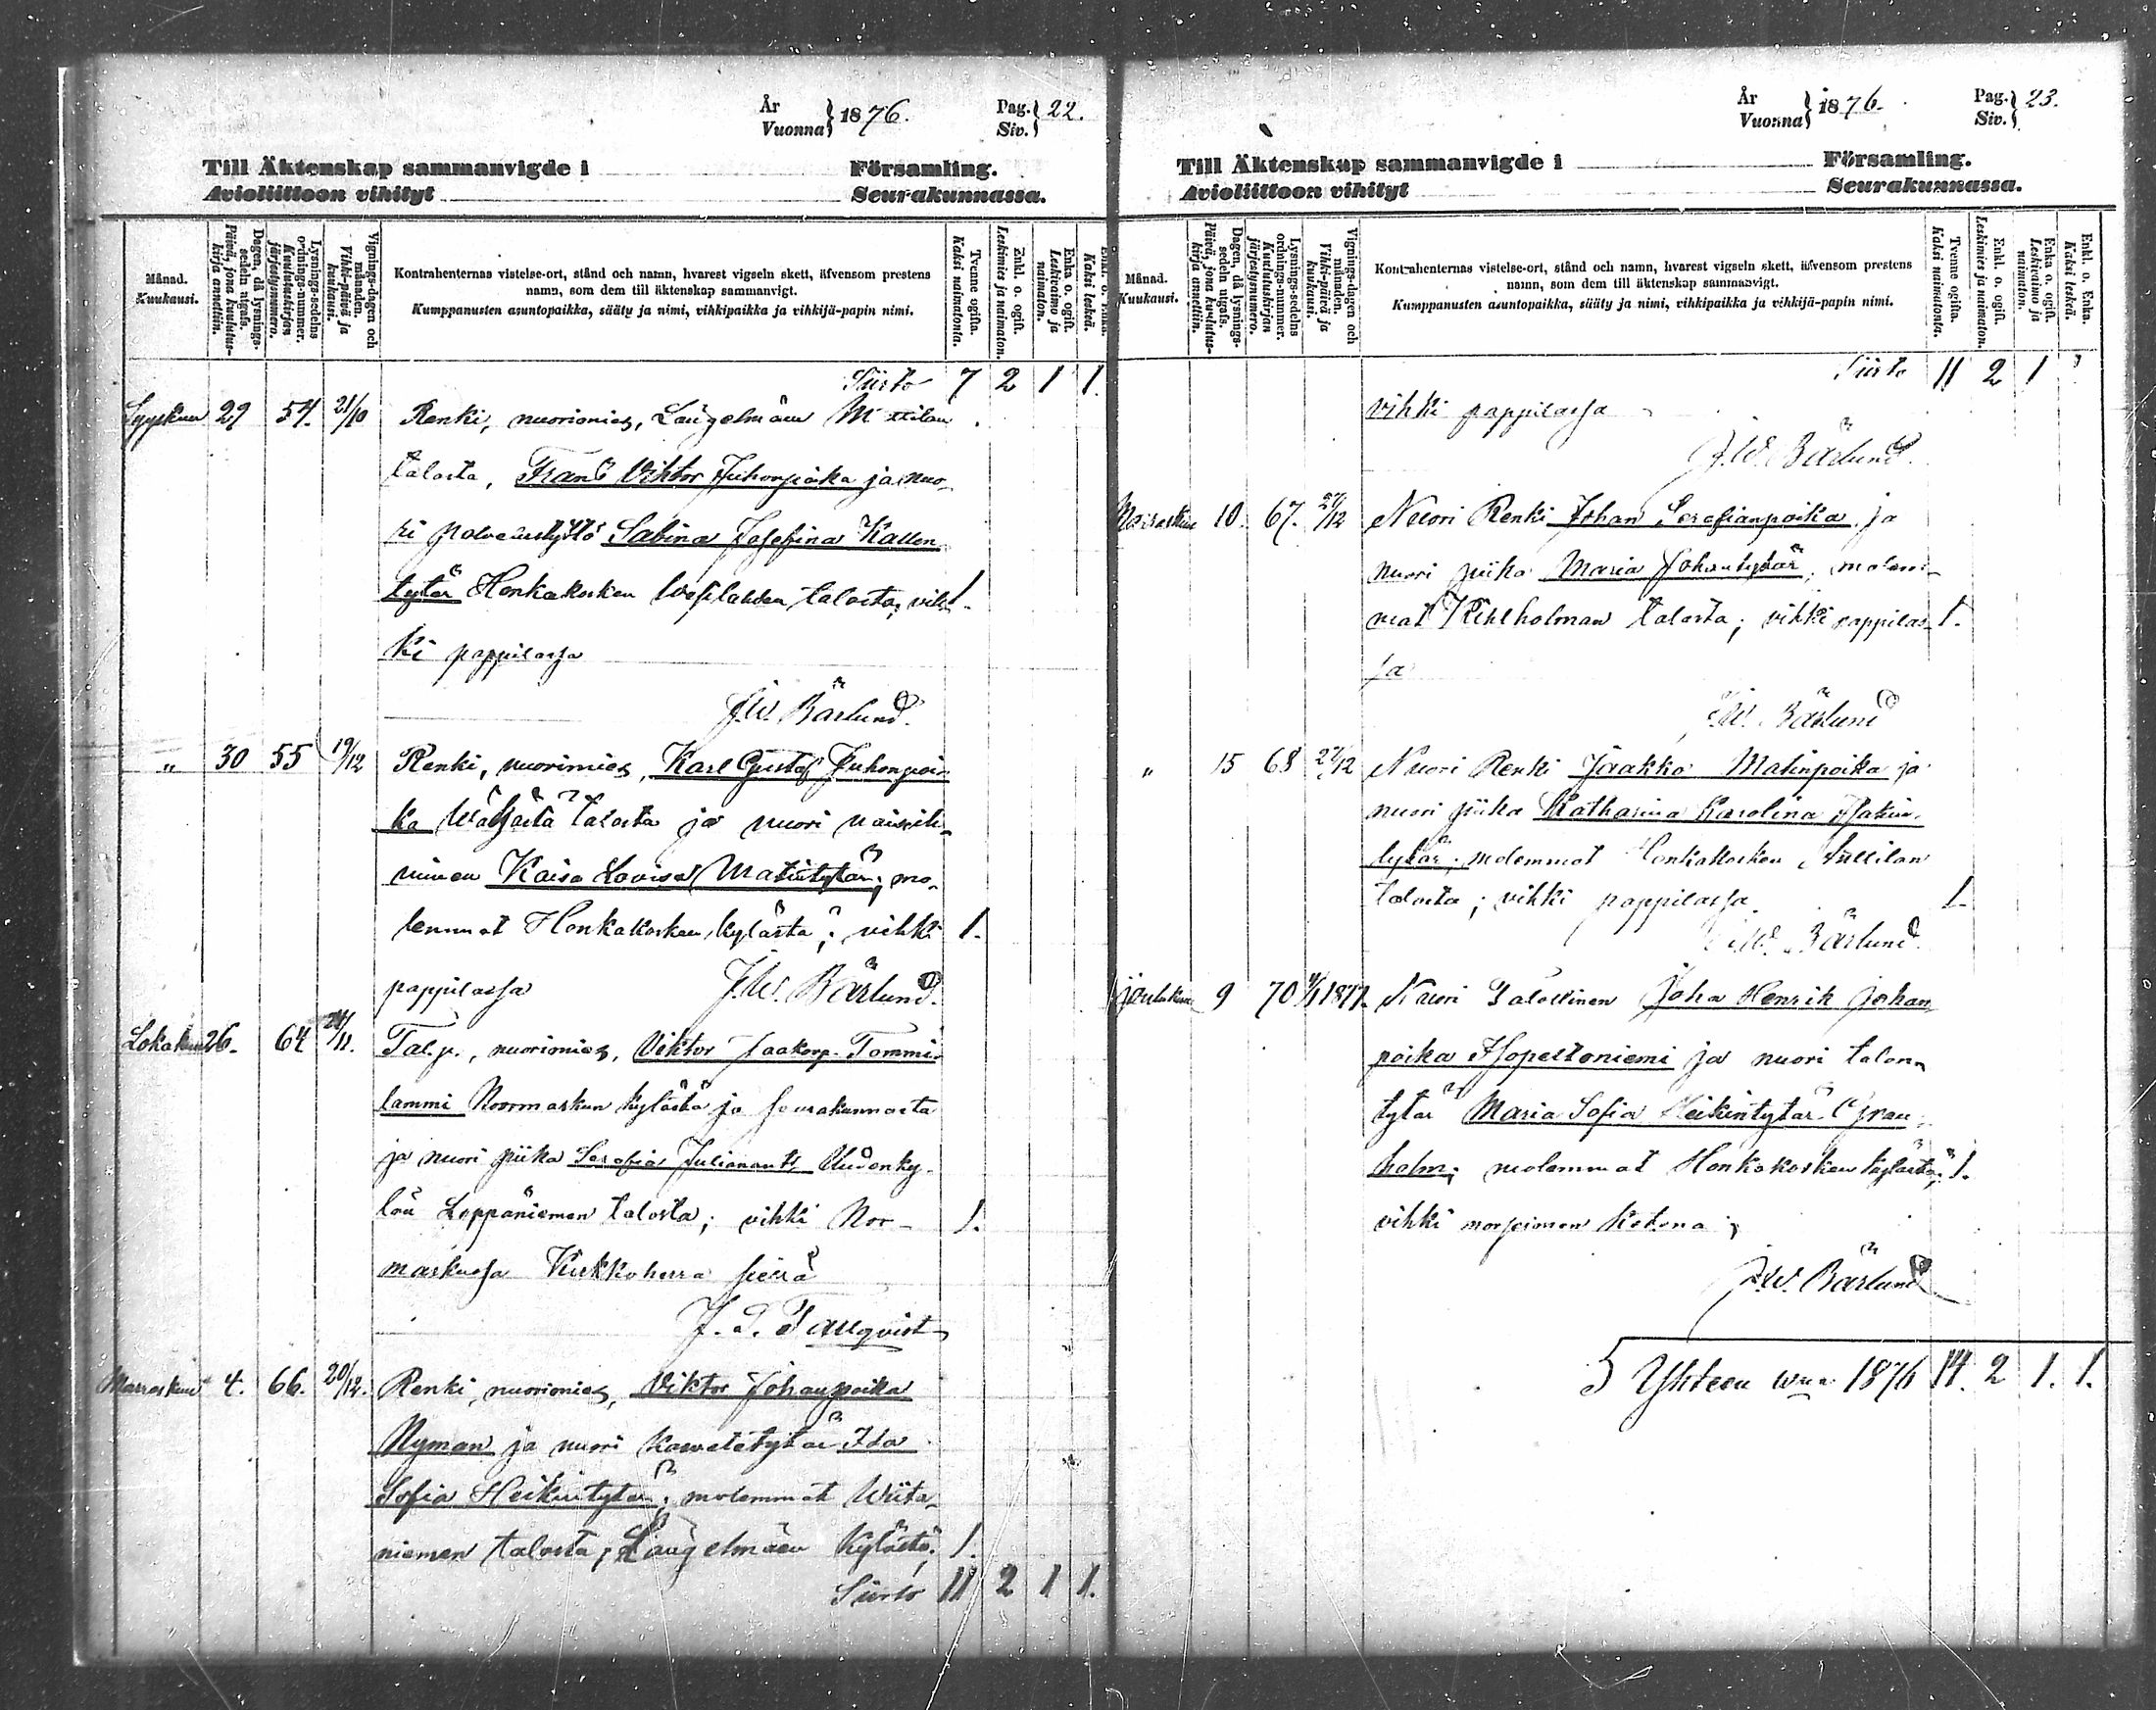 År
Vuonna} 1876. Pag. Siv.} 22.
Till Äktenskap sammanvigde i Församling.
Avioliittoon vihityt Seurakunnassa.
Månad. Kuukausi.
Dagen, då lysnings-sedeln utgafs. Päivä, jona kuulutus-kirja annettiin.
Lysnings-sedelns ordnings-nummer. Kuulutuskirjan järjestysnumero.
Vignings-dagen och månaden. Vihki-päivä ja kuukausi.
Kontrahenternas vistelse-ort, stånd och namn, hvarest vigseln skett, äfvensom prestens
namn, som dem till äktenskap sammanvigt.
Kumppanusten asuntopaikka, sääty ja nimi, vihkipaikka ja vihkijä-papin nimi.
Tvenne ogifta. Kaksi naimatonta.
Enkl. o. ogift. Leskimies ja naimaton.
Enka o. ogift. Leskivaimo ja naimaton.
Enkl. o. Enka. Kaksi leskeä.
Siirto 7 2 1 1.
Syyskuu 29 54. 21/10 Renki, nuorimies, Längelmäen
talosta, Frans Viktor Juhonpoika ja nuo-
ri Sabina Josefina Kallen
tytär Honkakosken talosta; vih- 1.
ki pappilassa
J.W. Bärlund.
" 30 55 19/12 Renki, nuorimies, Karl Gustaf Juhonpoi-
ka talosta ja nuori naisih-
minen Kaisa Lovisa Matintytär; mo-
lemmat Honkakosken kylästä; vihki 1.
pappilassa J.W. Bärlund.
Lokakuu 26. 64 24/11. Tal.p., nuorimies, Viktor Jaakonp. Tommi-
lammi Noormarkun kylästä ja seurakunnasta
ja nuori piika Serafia Julianant. Uudenky-
län Leppäniemen talosta; vihki Nor- 1.
markussa Kirkkoherra sieltä
J. T. Tallqvist
Marraskuu 4. 66. 20/12. Renki, nuorimies, Viktor Johanpoika
Nyman ja nuori Ida
Sofia Heikintytär; molemmat Wiita-
niemen talosta, Längelmäen kylästä; 1.
Siirto 11 2 1 1.
År
Vuonna} 1876. Pag. Siv.} 23.
Till Äktenskap sammanvigde i Församling.
Avioliittoon vihityt Seurakunnassa.
Månad. Kuukausi.
Dagen, då lysnings-sedeln utgafs. Päivä, jona kuulutus-kirja annettiin.
Lysnings-sedelns ordnings-nummer. Kuulutuskirjan järjestysnumero.
Vignings-dagen och månaden. Vihki-päivä ja kuukausi.
Kontrahenternas vistelse-ort, stånd och namn, hvarest vigseln skett, äfvensom prestens
namn, som dem till äktenskap sammanvigt.
Kumppanusten asuntopaikka, sääty ja nimi, vihkipaikka ja vihkijä-papin nimi.
Tvenne ogifta. Kaksi naimatonta.
Enkl. o. ogift. Leskimies ja naimaton.
Enka o. ogift. Leskivaimo ja naimaton.
Enkl. o. Enka. Kaksi leskeä.
Siirto 11 2 1
vihki pappilassa
J.W. Bärlund.
Marraskuu 10. 67. 27/12 Nuori Renki Johan Serafianpoika ja
nuori piika Maria Johantytär, molem-
mat talosta; vihki pappilas- 1.
sa
J.W. Bärlund
" 15 68 27/12 Nuori Renki Jaakko Matinpoika ja
nuori piika Katharina Karolina Isakin-
tytär; molemmat Honkakosken
talosta; vihki pappilassa. 1.
J.W. Bärlund
Joulukuu 9 70 1877. Nuori Talollinen Joha Henrik Johan
poika ja nuori talon-
tytär Maria Sofia Heikintytär Gran-
holm; molemmat Honkakosken kylästä; 1.
vihki morsiamen kotona;
J.W. Bärlund
Yhteen wnna 1876 14. 2 1. 1.